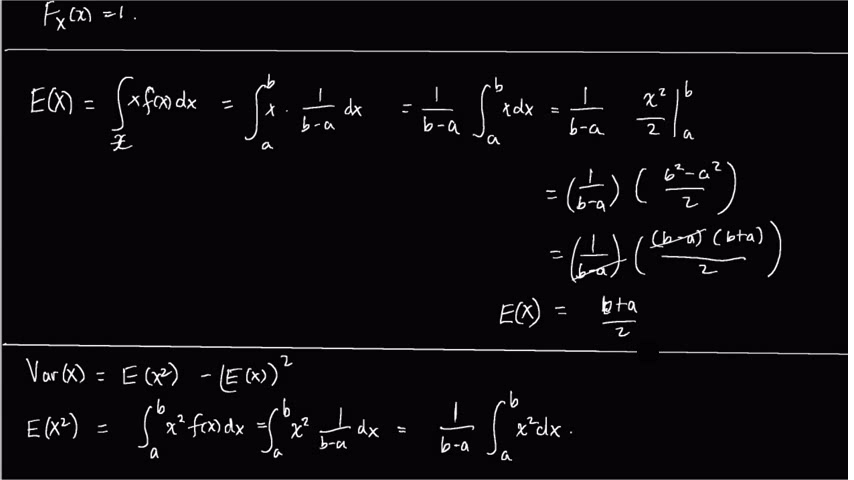 F_X(x) = 1.
E(X) = ∫_𝒳 x f(x) dx = ∫_a^b x · 1/(b-a) dx = 1/(b-a) ∫_a^b x dx = 1/(b-a) x²/2 |_a^b
= (1/(b-a)) ((b²-a²)/2)
= (1/(b-a)) ((b-a)(b+a)/2)
E(X) = (b+a)/2
Var(X) = E(X²) - (E(X))²
E(X²) = ∫_a^b x² f(x) dx = ∫_a^b x² 1/(b-a) dx = 1/(b-a) ∫_a^b x² dx.